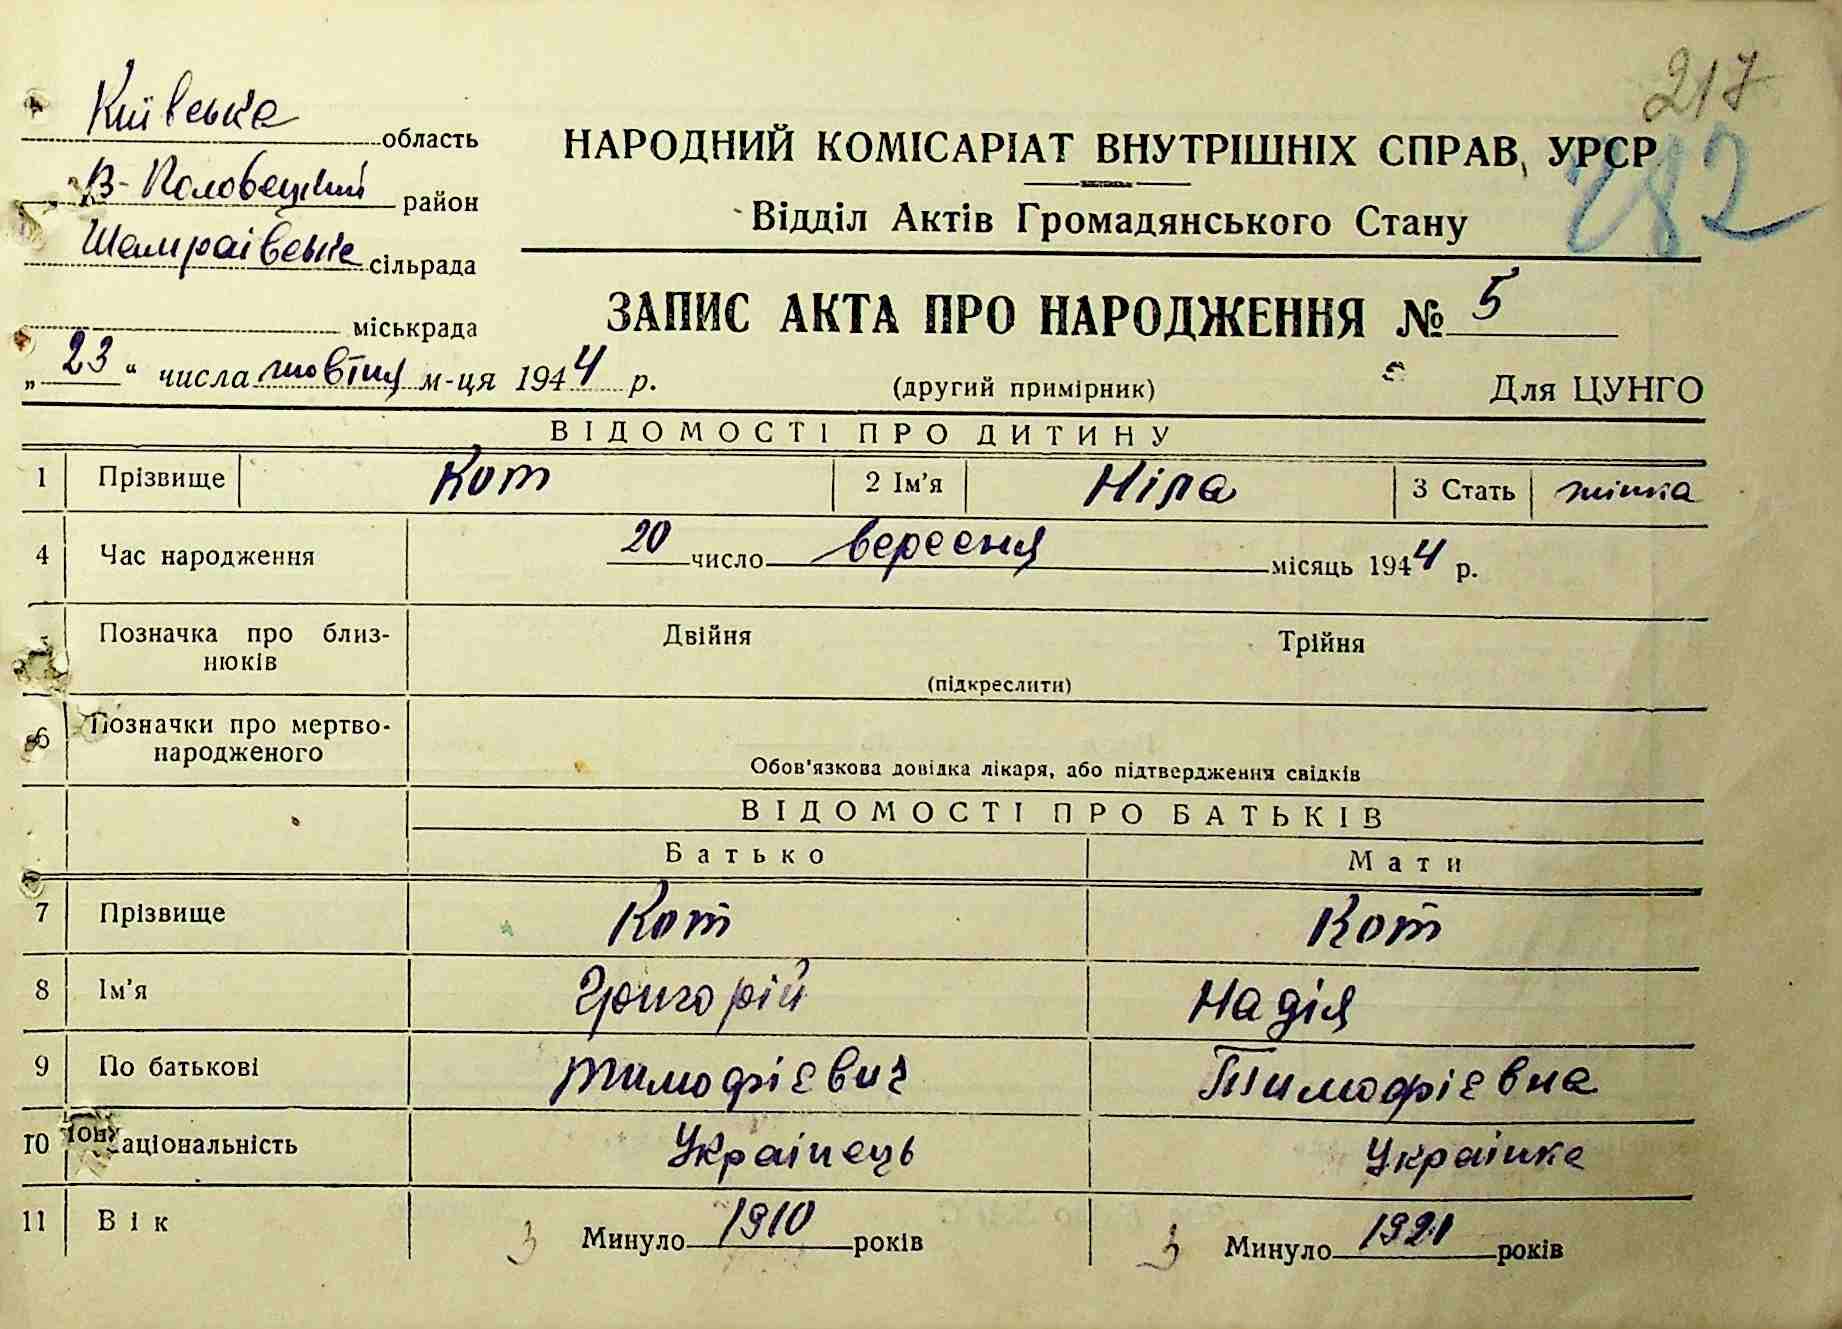 217
282
Київська область
В-Половецький район
Шамраївська сільрада
міськрада
„23“ числа жовтня м-ця 1944 р.
НАРОДНИЙ КОМІСАРІАТ ВНУТРІШНІХ СПРАВ, УРСР
Відділ Актів Громадянського Стану
ЗАПИС АКТА ПРО НАРОДЖЕННЯ № 5
(другий примірник) Для ЦУНГО
ВІДОМОСТІ ПРО ДИТИНУ
1 Прізвище Кот 2 Ім'я Ніла 3 Стать жінка
4 Час народження 20 число вересня місяць 1944 р.
Позначка про близ- Двійня Трійня
нюків
(підкреслити)
6 Позначки про мертво-
народженого
Обов'язкова довідка лікаря, або підтвердження свідків
ВІДОМОСТІ ПРО БАТЬКІВ
Батько Мати
7 Прізвище Кот Кот
8 Ім'я Григорій Надія
9 По батькові Тимофієвич Тимофієвна
10 Національність Украінець Украінка
11 Вік З Минуло 1910 років З Минуло 1921 років